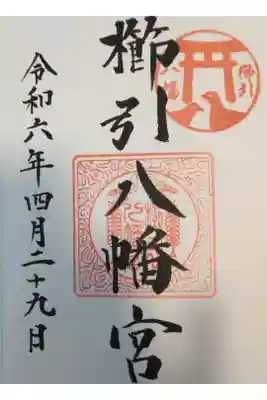 櫛引八幡宮
令和六年四月二十九日
櫛引
八幡